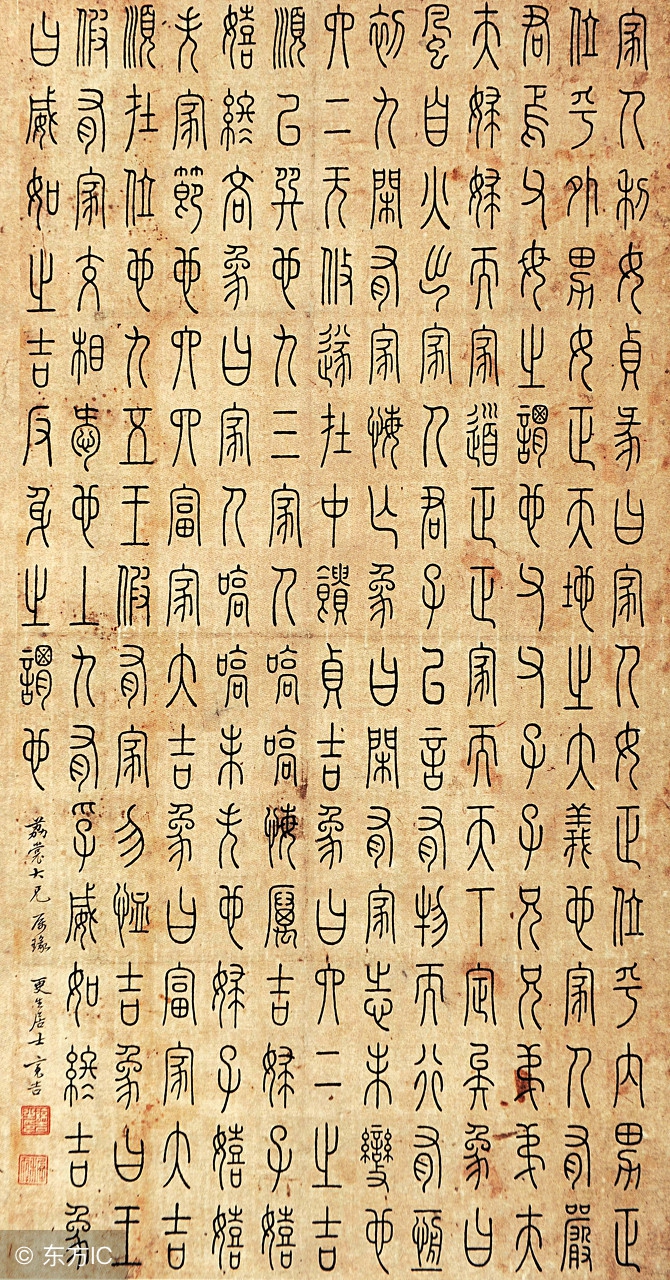 家人利女貞彖曰家人女正位乎内男正
位乎外男女正天地之大義也家人有嚴
君焉父母之謂也父父子子兄兄弟弟夫
夫婦婦而家道正正家而天下定矣象曰
風自火出家人君子以言有物而行有恆
初九閑有家悔亡象曰閑有家志未變也
六二无攸遂在中饋貞吉象曰六二之吉
順以巽也九三家人嗃嗃悔厲吉婦子嬉
嬉終吝象曰家人嗃嗃未失也婦子嬉嬉
失家節也六四富家大吉象曰富家大吉
順在位也九五王假有家勿恤吉象曰王
假有家交相愛也上九有孚威如終吉象
曰威如之吉反身之謂也
荔裳大兄屬瑑 更生居士亮吉
© 东方IC